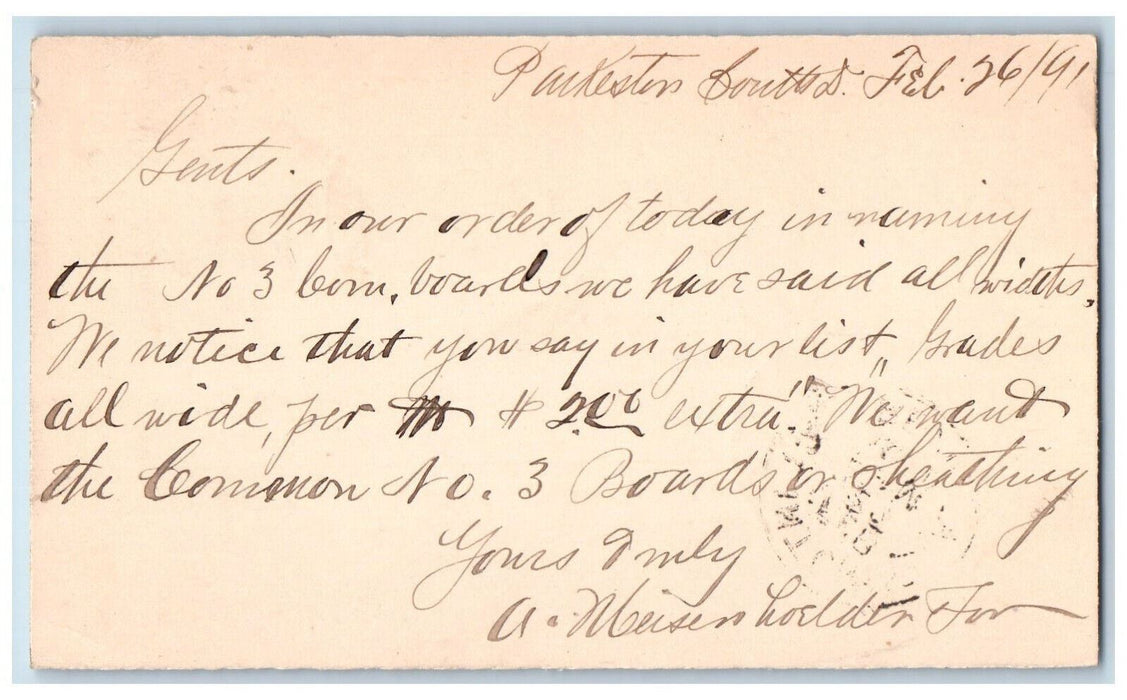 Parkston South D. Feb. 26/91
Gents.
In our order of today in naming
the No 3 Com. boards we have said all widths.
We notice that you say in your list „Grades
all wide, per M $ 2.00 extra." We want
the Common No. 3 Boards or sheathing
Yours Truly
A. Meisenhoelder For